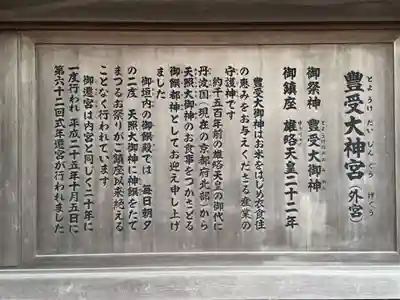 とようけだいじんぐう げくう
豊受大神宮（外宮）
御祭神 豊受大御神
とようけのおおみかみ
御鎮座 雄略天皇二十二年
豊受大御神はお米をはじめ衣食住
の恵みをお与えくださる産業の
守護神です
約千五百年前の雄略天皇の御代に
丹波国（現在の京都府北部）から
天照大御神のお食事をつかさどる
御饌都神としてお迎え申し上げ
ました
御垣内の御饌殿では 毎日朝夕
の二度 天照大御神に神饌をたて
まつるお祭りがご鎮座以来絶える
ことなく行われています
御遷宮は内宮と同じく二十年に
一度行われ 平成二十五年十月五日に
第六十二回式年遷宮が行われました